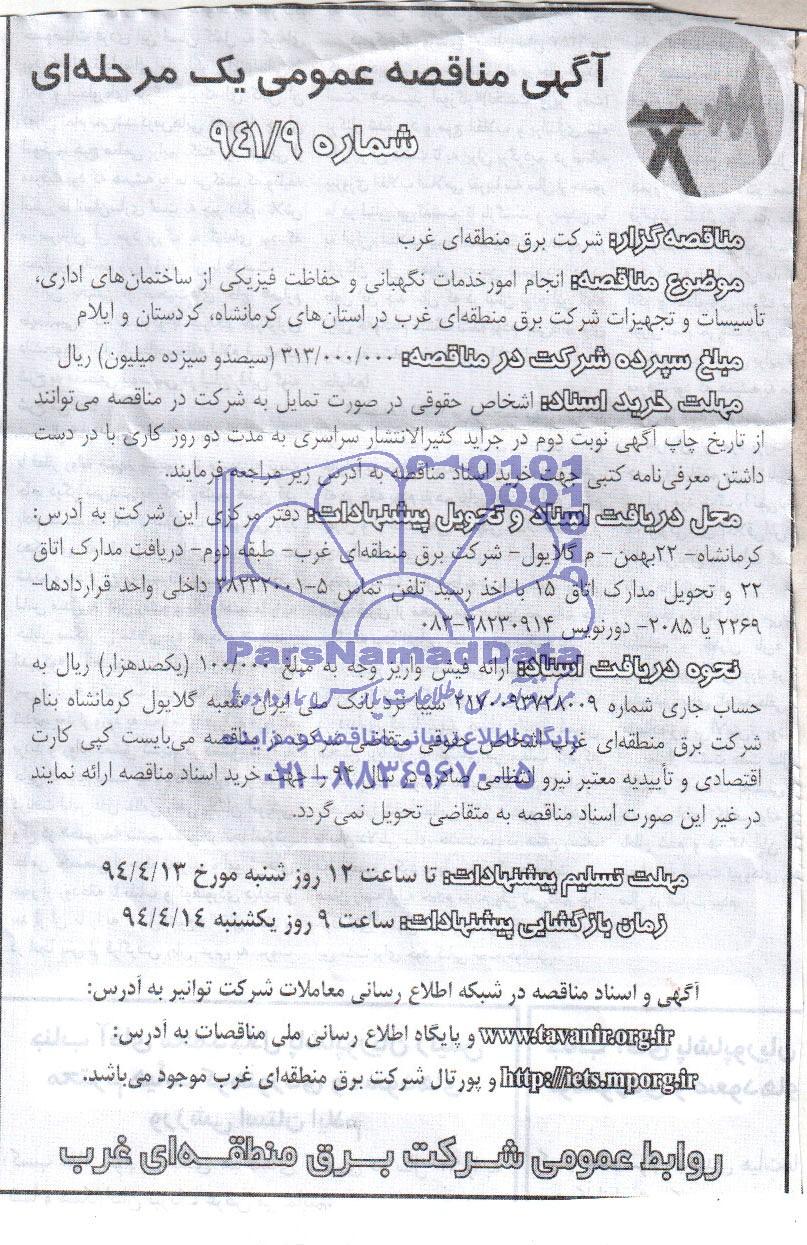 آگهی مناقصه عمومی یک مرحله‌ای
شماره ۹۴۱/۹
مناقصه‌گزار: شرکت برق منطقه‌ای غرب
موضوع مناقصه: انجام امورخدمات نگهبانی و حفاظت فیزیکی از ساختمان‌های اداری،
تأسیسات و تجهیزات شرکت برق منطقه‌ای غرب در استان‌های کرمانشاه، کردستان و ایلام
مبلغ سپرده شرکت در مناقصه: ۳۱۳/۰۰۰/۰۰۰ (سیصدو سیزده میلیون) ریال
مهلت خرید اسناد: اشخاص حقوقی در صورت تمایل به شرکت در مناقصه می‌توانند
از تاریخ چاپ آگهی نوبت دوم در جراید کثیرالانتشار سراسری به مدت دو روز کاری با در دست
داشتن معرفی‌نامه کتبی جهت خرید اسناد مناقصه به آدرس زیر مراجعه فرمایند.
محل دریافت اسناد و تحویل پیشنهادات: دفتر مرکزی این شرکت به آدرس:
کرمانشاه- ۲۲بهمن- م گالایول- شرکت برق منطقه‌ای غرب- طبقه دوم- دریافت مدارک اتاق
۲۲ و تحویل مدارک اتاق ۱۵ با اخذ رسید تلفن تماس ۵-۳۸۲۳۲۰۰۱ داخلی واحد قراردادها-
۲۲۶۹ یا ۲۰۸۵- دورنویس ۳۸۲۳۰۹۱۴-۰۸۳
ParsNamadData
نحوه دریافت اسناد: ارائه فیش واریز وجه به مبلغ ۱۰۰/۰۰۰ (یکصدهزار) ریال به
حساب جاری شماره ۲۱۷۰۰۹۳۷۲۸۰۰۹ سیبا نزد بانک ملی ایران شعبه گالایول کرمانشاه بنام
پایگاه اطلاع رسانی مناقصه و مزایده
شرکت برق منطقه‌ای غرب اشخاص حقوقی متقاضی شرکت در مناقصه می‌بایست کپی کارت
اقتصادی و تأییدیه معتبر نیرو انتظامی صادره در سال ۹۴ را جهت خرید اسناد مناقصه ارائه نمایند
۰۲۱-۸۸۳۴۹۶۷۰-۵
در غیر این صورت اسناد مناقصه به متقاضی تحویل نمی‌گردد.
مهلت تسلیم پیشنهادات: تا ساعت ۱۲ روز شنبه مورخ ۹۴/۴/۱۳
زمان بازگشایی پیشنهادات: ساعت ۹ روز یکشنبه ۹۴/۴/۱۴
آگهی و اسناد مناقصه در شبکه اطلاع رسانی معاملات شرکت توانیر به آدرس:
www.tavanir.org.ir و پایگاه اطلاع رسانی ملی مناقصات به آدرس:
http://iets.mporg.ir و پورتال شرکت برق منطقه‌ای غرب موجود می‌باشد.
روابط عمومی شرکت برق منطقه‌ای غرب